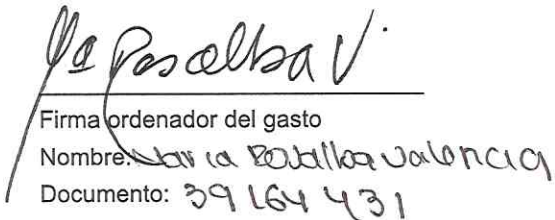 Mª Rosalba V.
Firma ordenador del gasto
Nombre: Maria Rosalba Valencia
Documento: 39164431